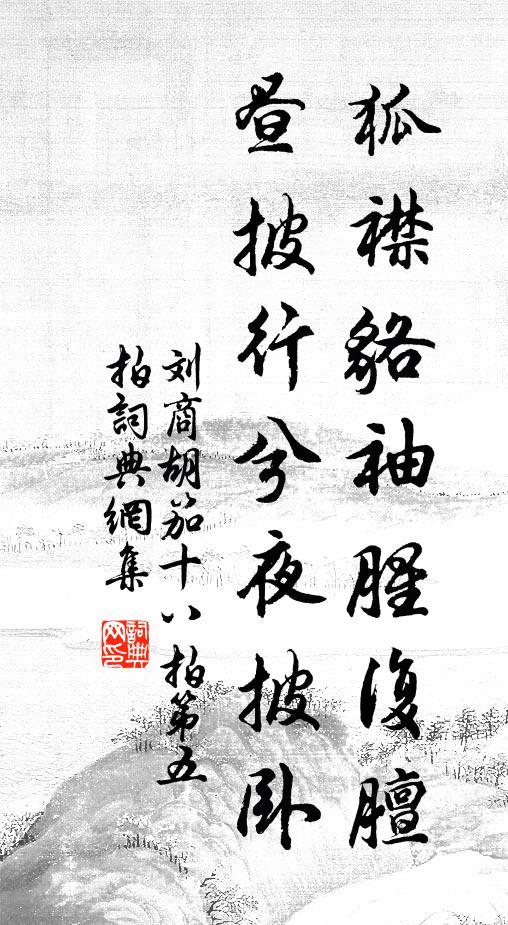 狐襟貉袖腥復膻
晝披行兮夜披卧
刘商胡笳十八拍第五
拍詞典網集
詞典網印